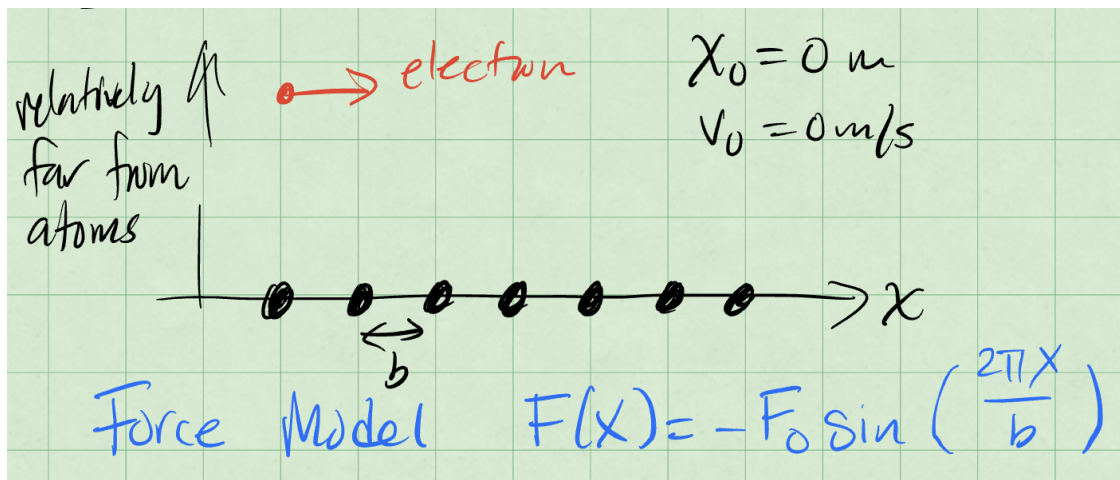 relatively
far from
atoms
electron
X₀ = 0 m
V₀ = 0 m/s
b
x
Force Model F(x) = -F₀ sin (2πx/b)